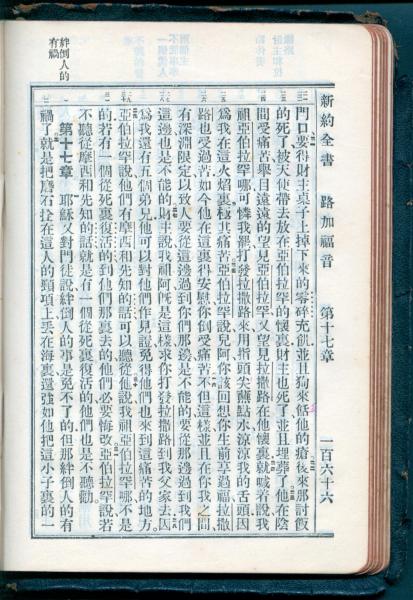 新約全書 路加福音 第十七章 一百六十六
門口要得財主桌子上掉下來的零碎充飢並且狗來餂他的瘡後來那討飯
的死了被天使帶去放在亞伯拉罕的懷裏財主也死了並且埋葬了他在陰
間受痛苦舉目遠遠的望見亞伯拉罕又望見拉撒路在他懷裏就喊着說我
祖亞伯拉罕哪可憐我罷打發拉撒路來用指頭尖蘸點水涼涼我的舌頭因
爲我在這火焰裏極其痛苦亞伯拉罕說兒阿你該回想你生前享過福拉撒
路也受過苦如今他在這裏得安慰你倒受痛苦不但這樣並且在你我之間
有深淵限定以致人要從這邊過到你們那邊是不能的要從那邊過到我們
這邊也是不能的財主說我祖阿旣是這樣求你打發拉撒路到我父家去因
爲我還有五個弟兄他可以對他們作見證免得他們也來到這痛苦的地方
亞伯拉罕說他們有摩西和先知的話可以聽從他說我祖亞伯拉罕哪不是
的若有一個從死裏復活的到他們那裏去的他們必要悔改亞伯拉罕說若
不聽從摩西和先知的話就是有一個從死裏復活的他們也是不聽勸
第十七章 耶穌又對門徒說絆倒人的事是免不了的但那絆倒人的有
禍了就是把磨石拴在這人的頸項上丟在海裏還強如他把這小子裏的一
絆倒人的
有禍